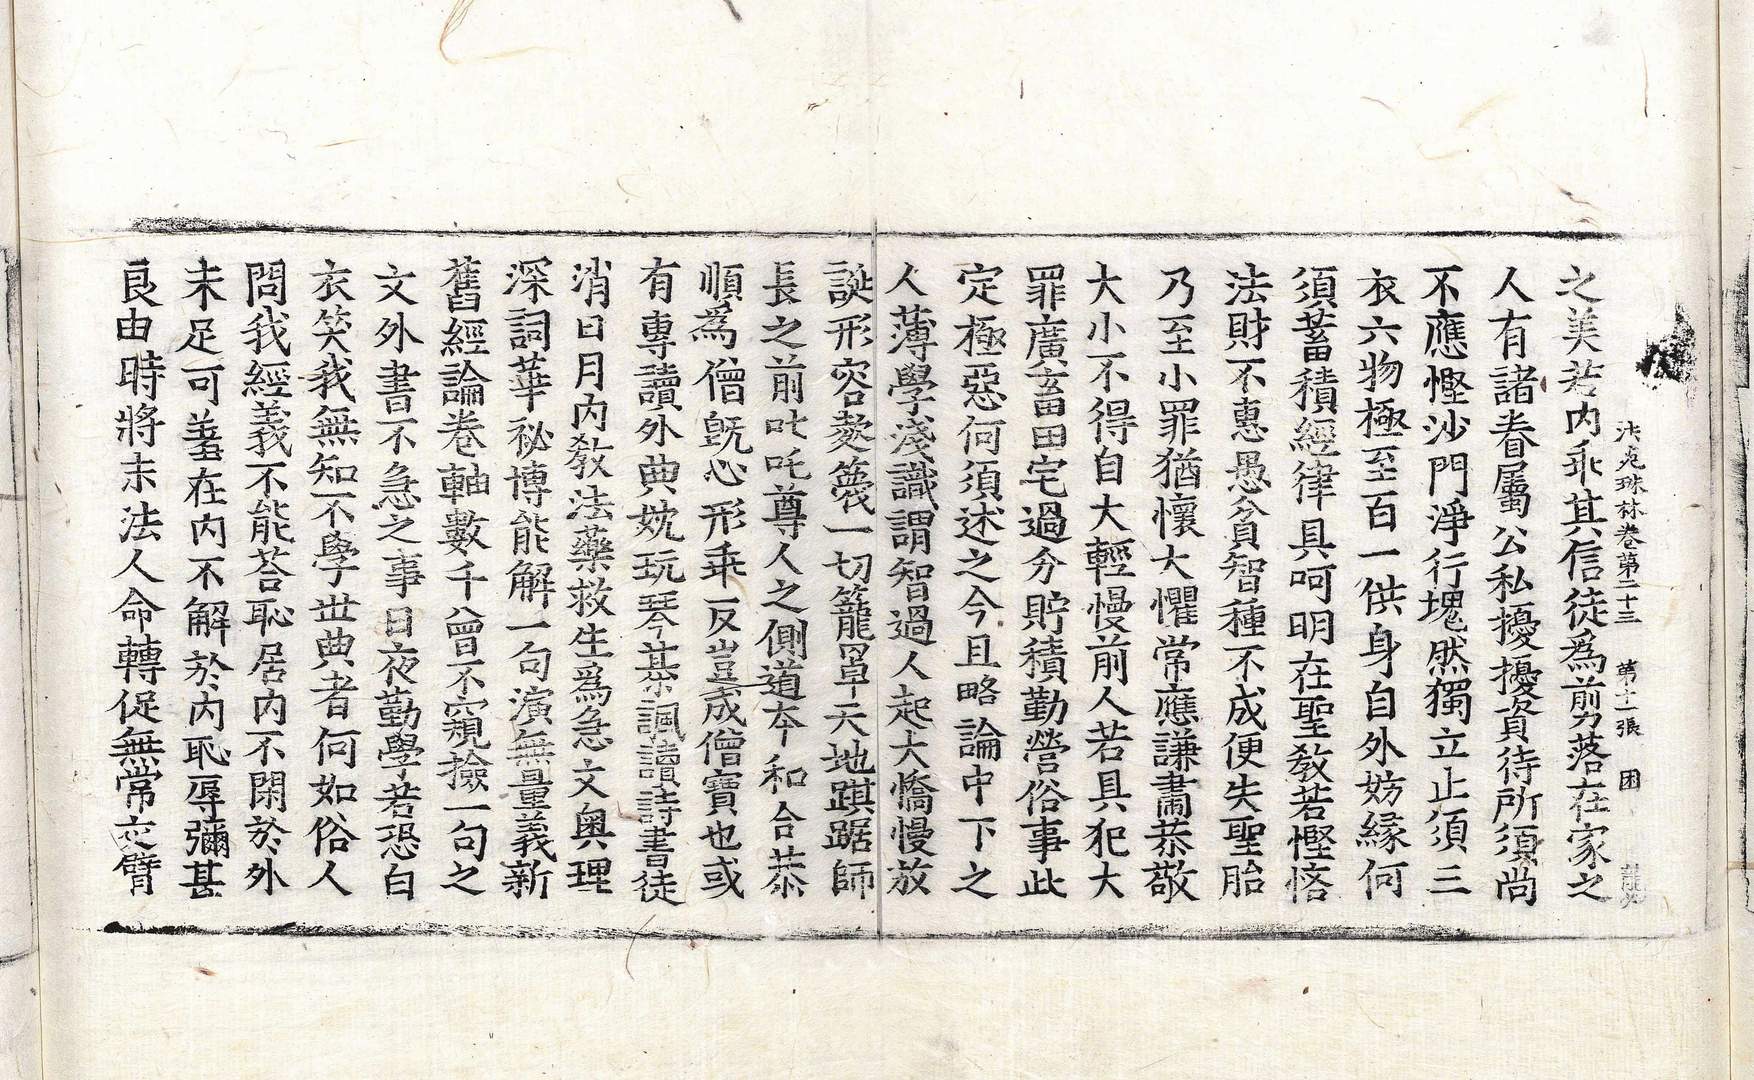 法苑珠林卷第二十三 第十一張 困
之美若內乖其信徒爲剪落在家之
人有諸眷屬公私擾擾資待所須尚
不應慳沙門淨行塊然獨立止須三
衣六物極至百一供身自外妨緣何
須蓄積經律具呵明在聖教若慳悋
法財不惠愚貧智種不成便失聖胎
乃至小罪猶懷大懼常應謙肅恭敬
大小不得自大輕慢前人若具犯大
罪廣畜田宅過分貯積勤營俗事此
定極惡何須述之今且略論中下之
人薄學淺識謂智過人起大憍慢放
誕形容欻蔑一切籠罩天地踑踞師
長之前叱吒尊人之側道本和合恭
順爲僧旣心形乖反豈成僧寶也或
有專讀外典躭玩琴棊諷讀詩書徒
消日月內教法藥救生爲急文奧理
深詞華祕博能解一句演無量義新
舊經論卷軸數千曾不窺撿一句之
文外書不急之事日夜勤學若恐白
衣笑我無知不學世典者何如俗人
問我經義不能荅恥居內不閑於外
未足可羞在內不解於內恥辱彌甚
良由時將末法人命轉促無常交臂